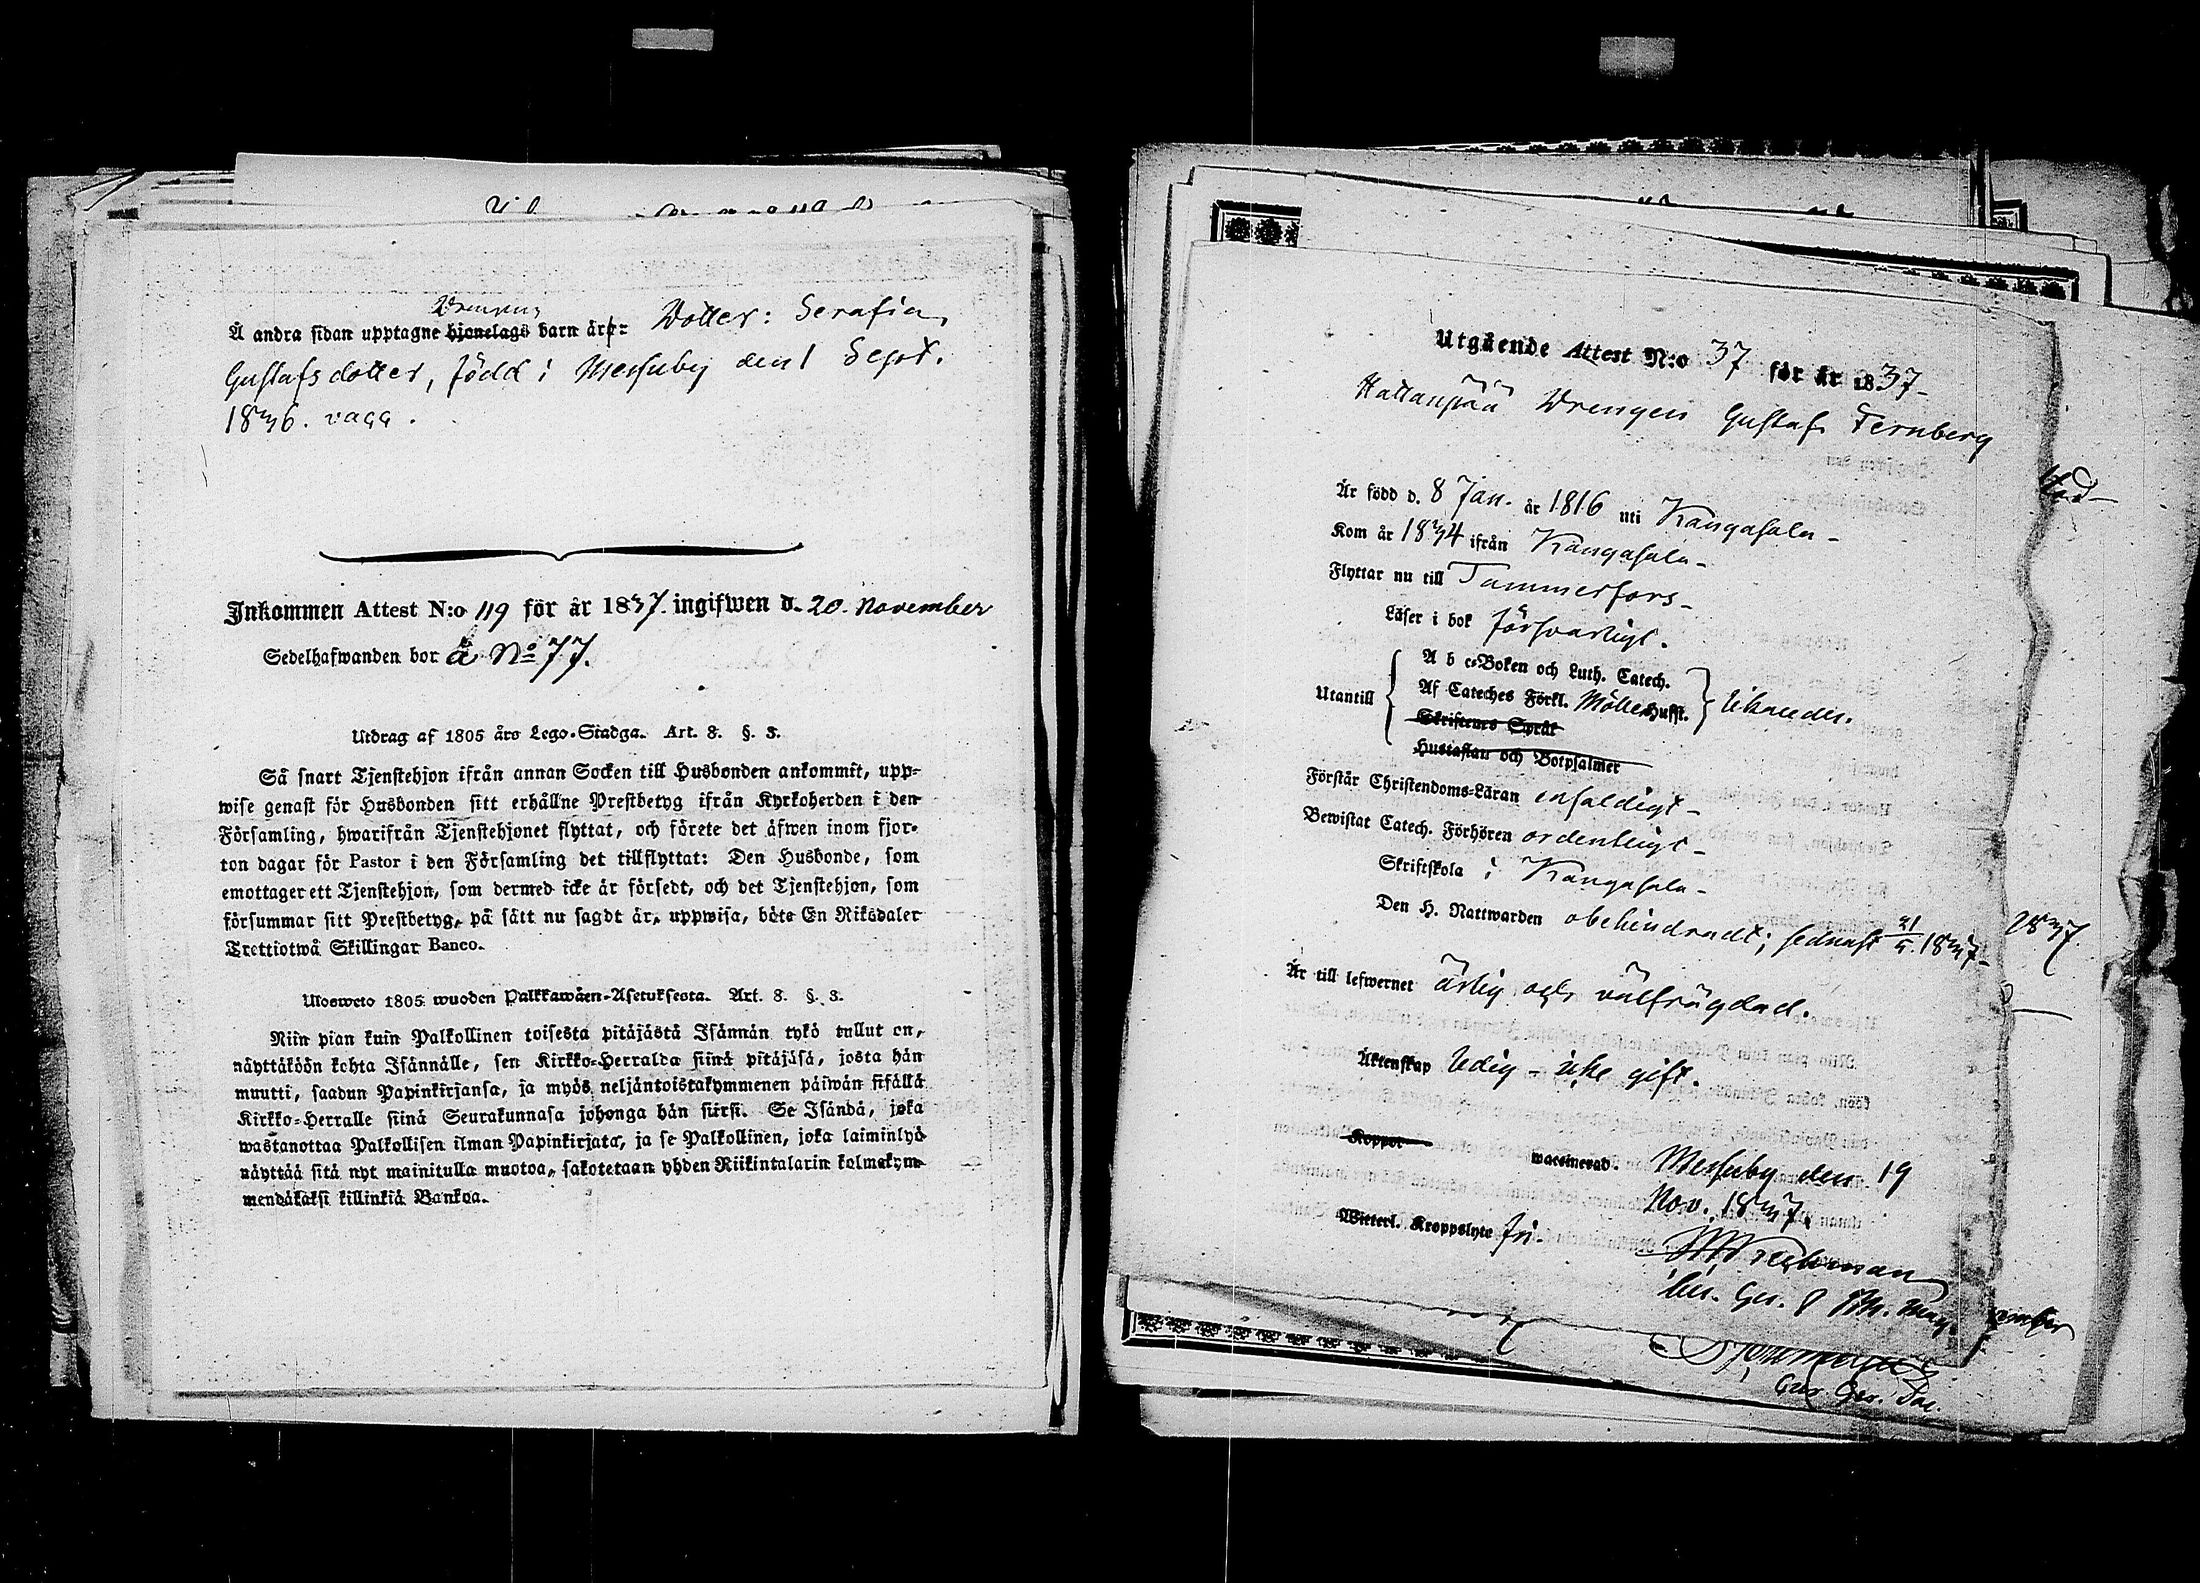 Drengens
Å andra sidan upptagne hjonelags barn äro: Dotter: Serafia
Gustafsdotter, född i Messuby den 1 Sept.
1836. vacc.
Inkommen Attest N:o 119 för år 1837. ingifwen d. 20. November
Sedelhafwanden bor å No 77.
Utdrag af 1805 års Lego-Stadga. Art. 8. §. 3.
Så snart Tjenstehjon ifrån annan Socken till Husbonden ankommit, upp-
wise genast för Husbonden sitt erhållne Prestbetyg ifrån Kyrkoherden i den
Församling, hwarifrån Tjenstehjonet flyttat, och förete det äfwen inom fjor-
ton dagar för Pastor i den Församling det tillflyttat: Den Husbonde, som
emottager ett Tjenstehjon, som dermed icke är försedt, och det Tjenstehjon, som
försummar sitt Prestbetyg, på sätt nu sagdt är, uppwisa, böte En Riksdaler
Trettiotwå Skillingar Banco.
Ulosweto 1805 wuoden Palkkawäen-Asetuksesta. Art. 8. §. 3.
Niin pian kuin Palkollinen toisesta pitäjästä Isännän tykö tullut on,
näyttäköön kohta Isännälle, sen Kirkko-Herralda siinä pitäjäsä, josta hän
muutti, saadun Papinkirjansa, ja myös neljäntoistakymmenen päiwän sisällä
Kirkko-Herralle siinä Seurakunnasa johonga hän siirsi. Se Isändä, joka
wastanottaa Palkollisen ilman Papinkirjata, ja se Palkollinen, joka laiminlyö
näyttää sitä nyt mainitulla muotoa, sakotetaan yhden Riikintalarin kolmekym-
mendäkaksi killinkiä Bankoa.
Utgående Attest N:o 37 för år 1837-
Hattanpää Drengen Gustaf Fernberg
Är född d. 8 Jan. år 1816 uti Kangasala-
Kom år 1834 ifrån Kangasala-
Flyttar nu till Tammerfors-
Läser i bok försvarligt.
A b c-Boken och Luth. Catech.
Utantill Af Cateches Förkl. Möllers Huffst.
Skriftenes Språk
Hustaflan och Botpsalmer
Förstår Christendoms-Läran enfaldigt-
Bewistat Catech. Förhören ordentligt-
Skriftskola i Kangasala-
Den H. Nattwarden obehindradt; sednast 21/5 1837-
Är till lefwernet ärlig och välfrägdad.
Äktenskap ledig - icke gift.
Koppor waccinerad. Messuby den 19
Nov. 1837.
Witterl. Kroppslyte fri.
1837.